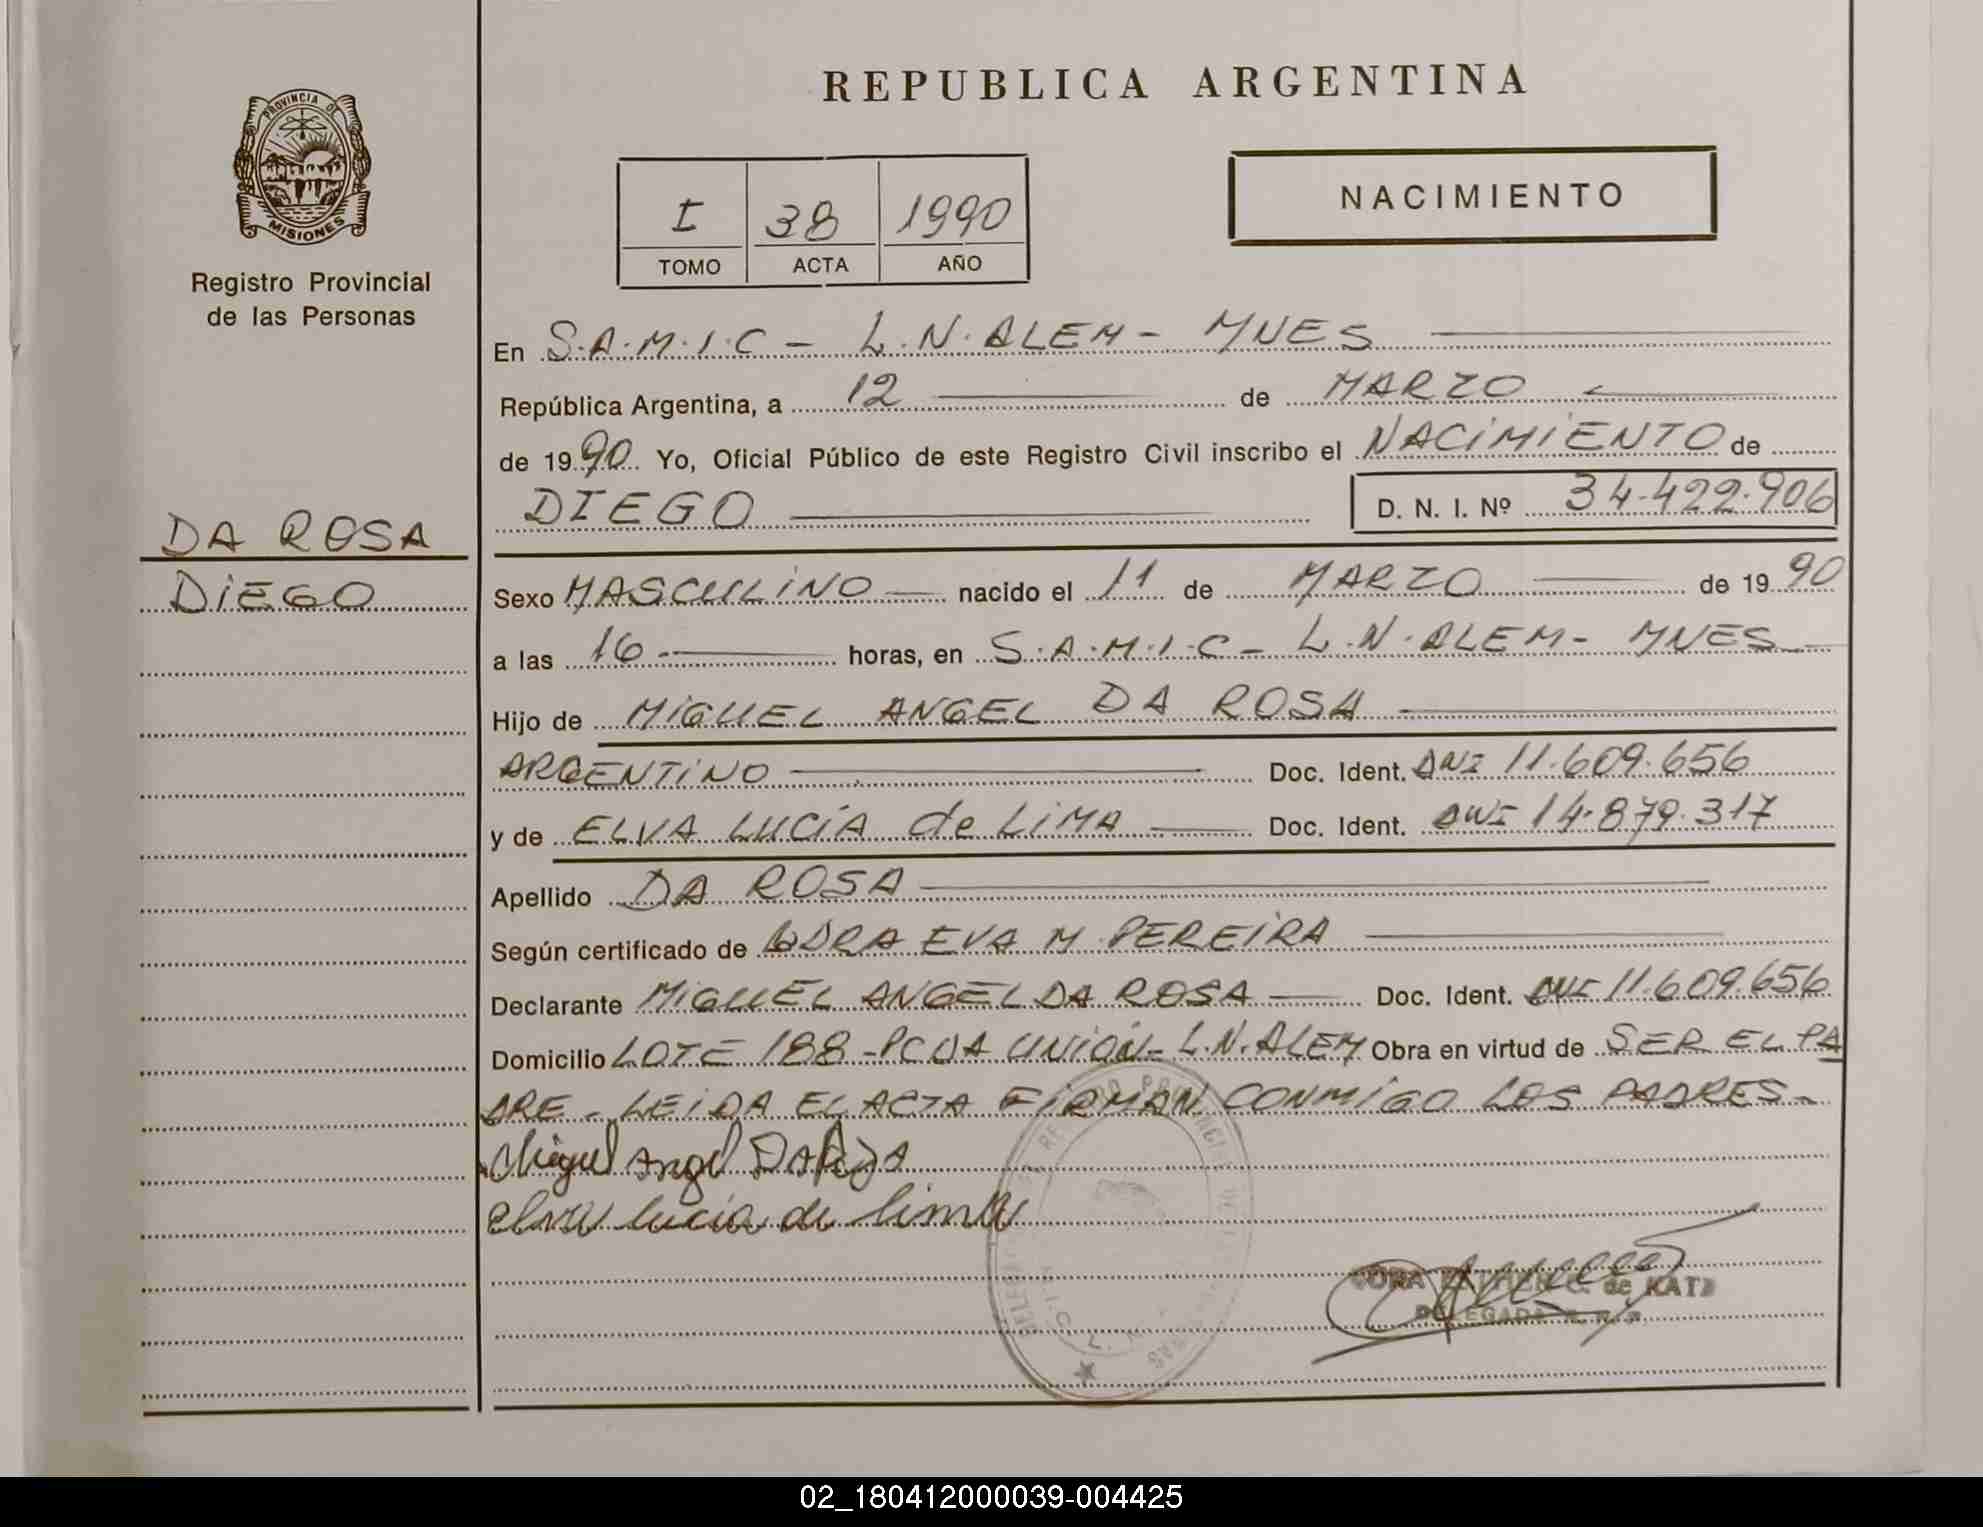 REPUBLICA ARGENTINA
PROVINCIA DE
MISIONES
Registro Provincial
de las Personas
I 38 1990
TOMO ACTA AÑO
NACIMIENTO
En S.A.M.I.C - L.N.ALEM - MNES
República Argentina, a 12 de MARZO
de 1990 Yo, Oficial Público de este Registro Civil inscribo el NACIMIENTO de
DIEGO D. N. I. Nº 34.422.906
DA ROSA
DIEGO
Sexo MASCULINO nacido el 11 de MARZO de 1990
a las 16 horas, en S.A.M.I.C - L.N.ALEM - MNES
Hijo de MIGUEL ANGEL DA ROSA
ARGENTINO Doc. Ident. DNI 11.609.656
y de ELVA LUCÍA de LIMA Doc. Ident. DNI 14.879.317
Apellido DA ROSA
Según certificado de EVA M PEREIRA
Declarante MIGUEL ANGEL DA ROSA Doc. Ident. DNI 11.609.656
Domicilio LOTE 188 - PCIJA UNIÓN - L.N.ALEM Obra en virtud de SER EL PA
DRE - LEIDA EL ACTA FIRMAN CONMIGO LOS PADRES -
Miguel Angel Da Rosa
elva lucia de lima
de KATZ
DELEGADA
02_180412000039-004425